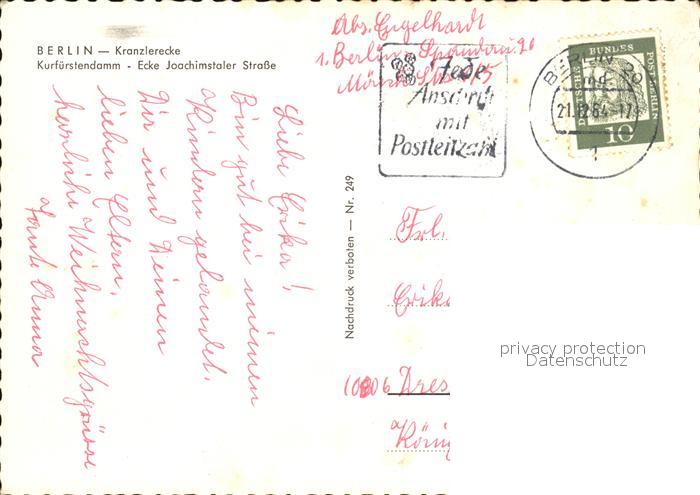 BERLIN — Kranzlerecke
Kurfürstendamm - Ecke Joachimstaler Straße
Abs. Engelhardt
1. Berlin - Spandau 20
15
Jede
Anschrift
mit
Postleitzahl
BERLIN
21.12.64-17
1
DEUTSCHE BUNDESPOST BERLIN
10
Liebe Erika!
Bin gut bei meinen
Kindern gelandet.
Dir und Deinen
lieben Eltern,
herzliche Weihnachtsgrüsse
Tante Anna
Nachdruck verboten — Nr. 249
Frl.
Erik
806 Dres
König
privacy protection
Datenschutz